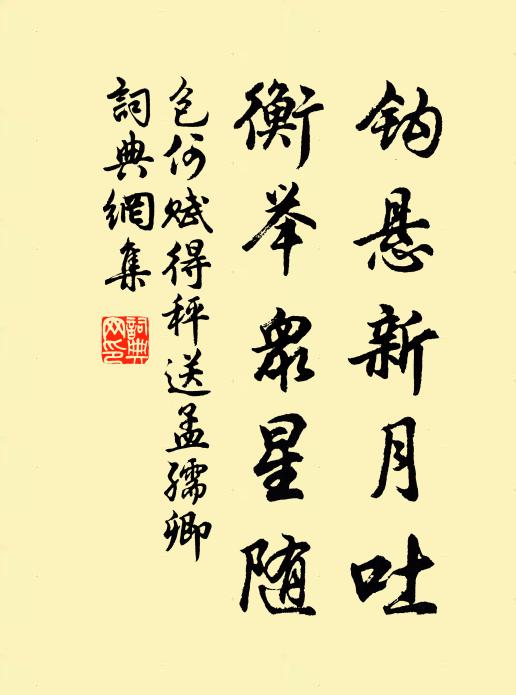 钩悬新月吐
衡举众星随
包何赋得秤送孟孺卿
詞典網集
詞典网印